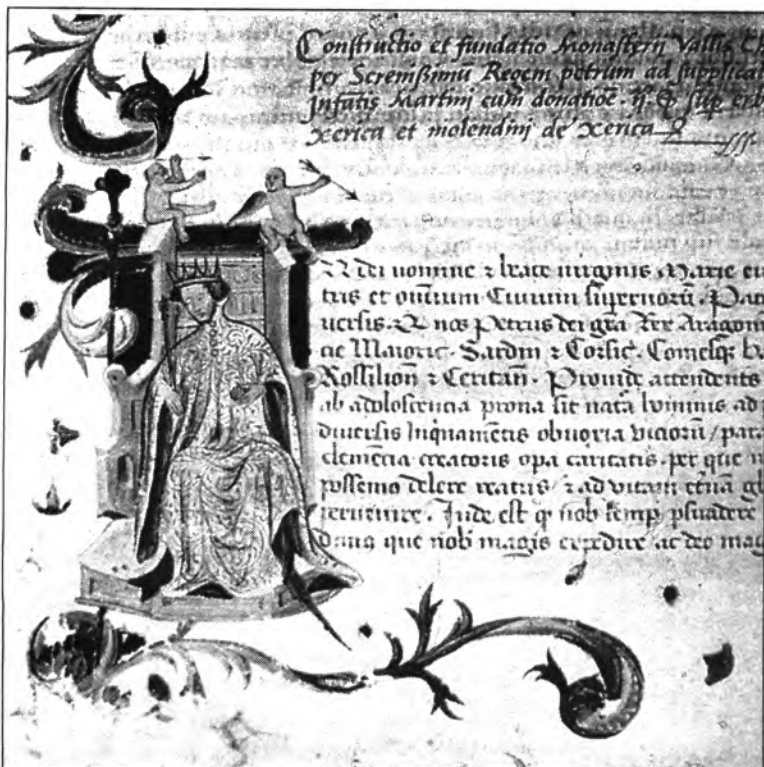 Constructio et fundatio Monasterij Vallis
per Serenißimũ Regem petrum ad supplicat
Infãtis Martini cum donatioẽ. sup
xerica et molendinj de xerica
Dei nomine ⁊ beate virginis Marie
tris et omnium Civium supernorũ.
versis. nos Petrus dei grã Rex Aragon
cie Maioric. Sardin ⁊ Corsic. Comesq
Rossilion ⁊ Ceritan. Provide attendentes
ab adoloscencia prona sit nata hominis ad
diversis Inquametis obnoxia viciorũ / para
clemẽcia creatoris opa caritatis. per que
possemo delere reatus / ⁊ ad vitam etnã
pervenire. Inde est q nob semp psuadere
que nob magis expedire ac deo mag